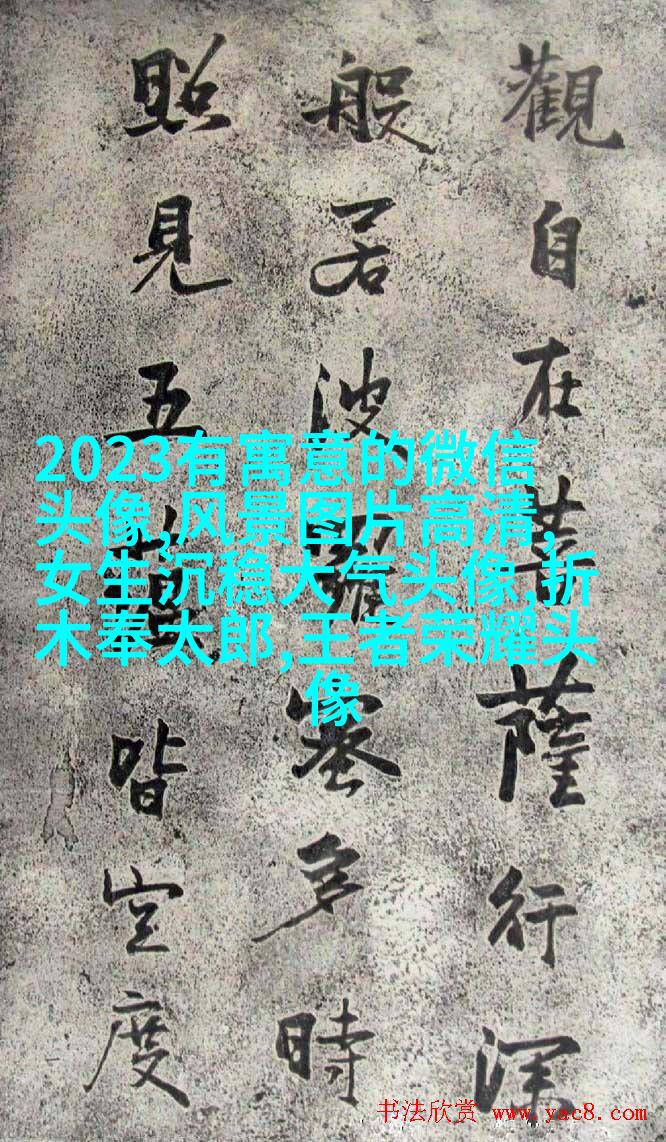 觀自在菩薩行深
般若波羅蜜多時
照見五蘊皆空度
2023有寓意的微信
头像,风景图片高清,
女生沉稳大气头像,折
木奉太郎,王者荣耀头
像
书法欣赏 www.yac8.com